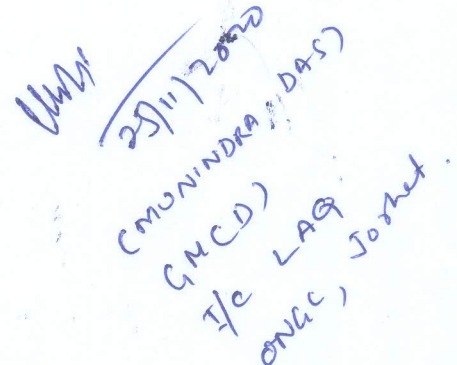 25/11/2020
(MUNINDRA DAS)
GM(D)
I/C LAQ
ONGC, Jorhat.